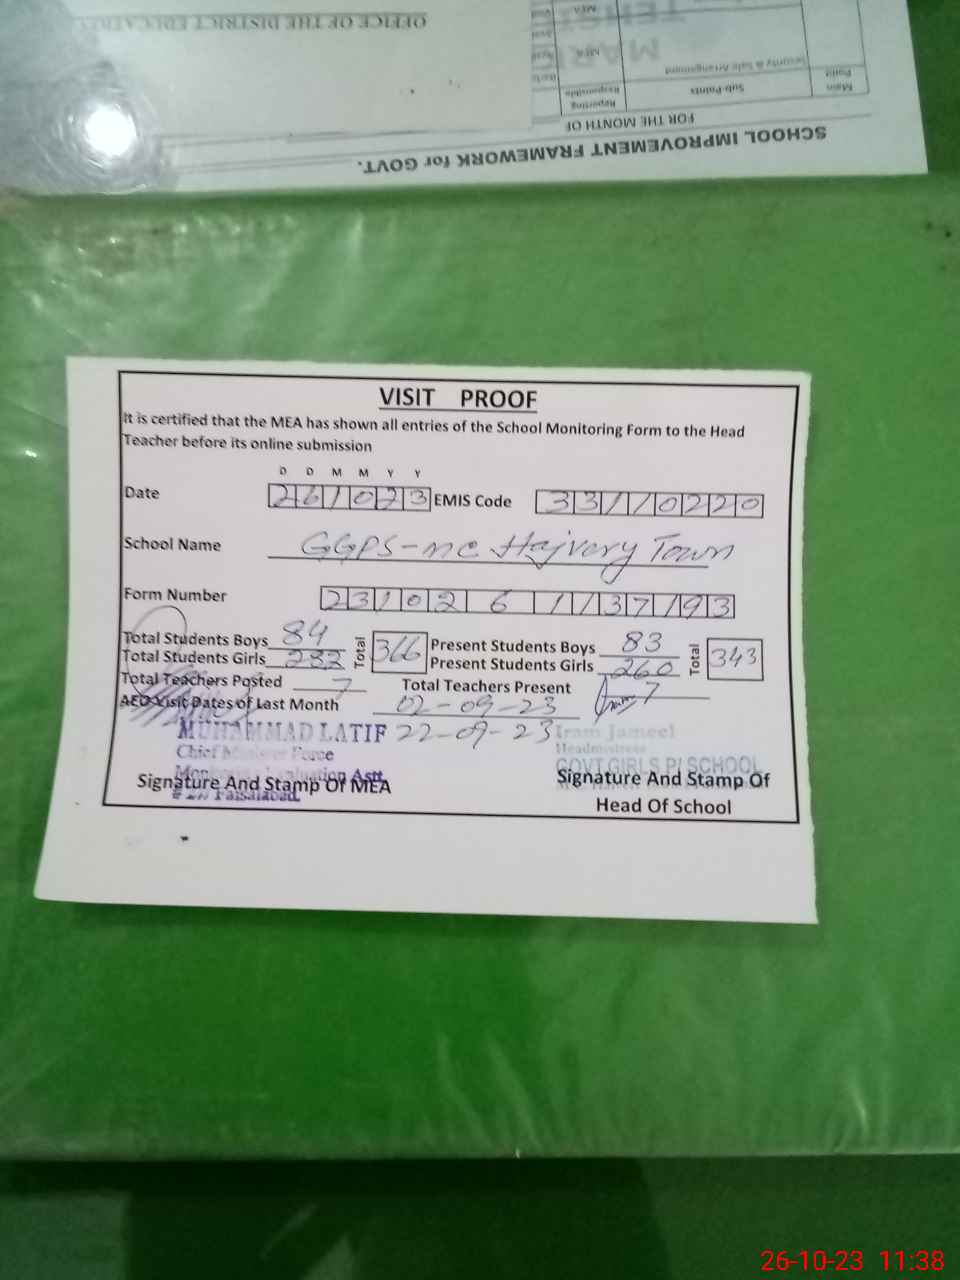 OFFICE OF THE DISTRICT EDUCATION
SCHOOL IMPROVEMENT FRAMEWORK for GOVT.
FOR THE MONTH OF
Main Point Sub-Points Reporting Responsible
Security & Safe Arrangement MEA
MEA
VISIT PROOF
It is certified that the MEA has shown all entries of the School Monitoring Form to the Head
Teacher before its online submission
D D M M Y Y
Date 261023 EMIS Code 33110220
School Name GGPS-mc Hajvery Town
Form Number 2310261137193
Total Students Boys 84 Total 366 Present Students Boys 83 Total 343
Total Students Girls 282 Present Students Girls 260
Total Teachers Posted 7 Total Teachers Present 7
AEO Visit Dates of Last Month 02-09-23
MUHAMMAD LATIF 22-09-23 Iram Jameel
Chief Minister Force Headmistress
GOVT GIRLS P/SCHOOL
Signature And Stamp Of MEA Signature And Stamp Of
Faisalabad Head Of School
26-10-23 11:38